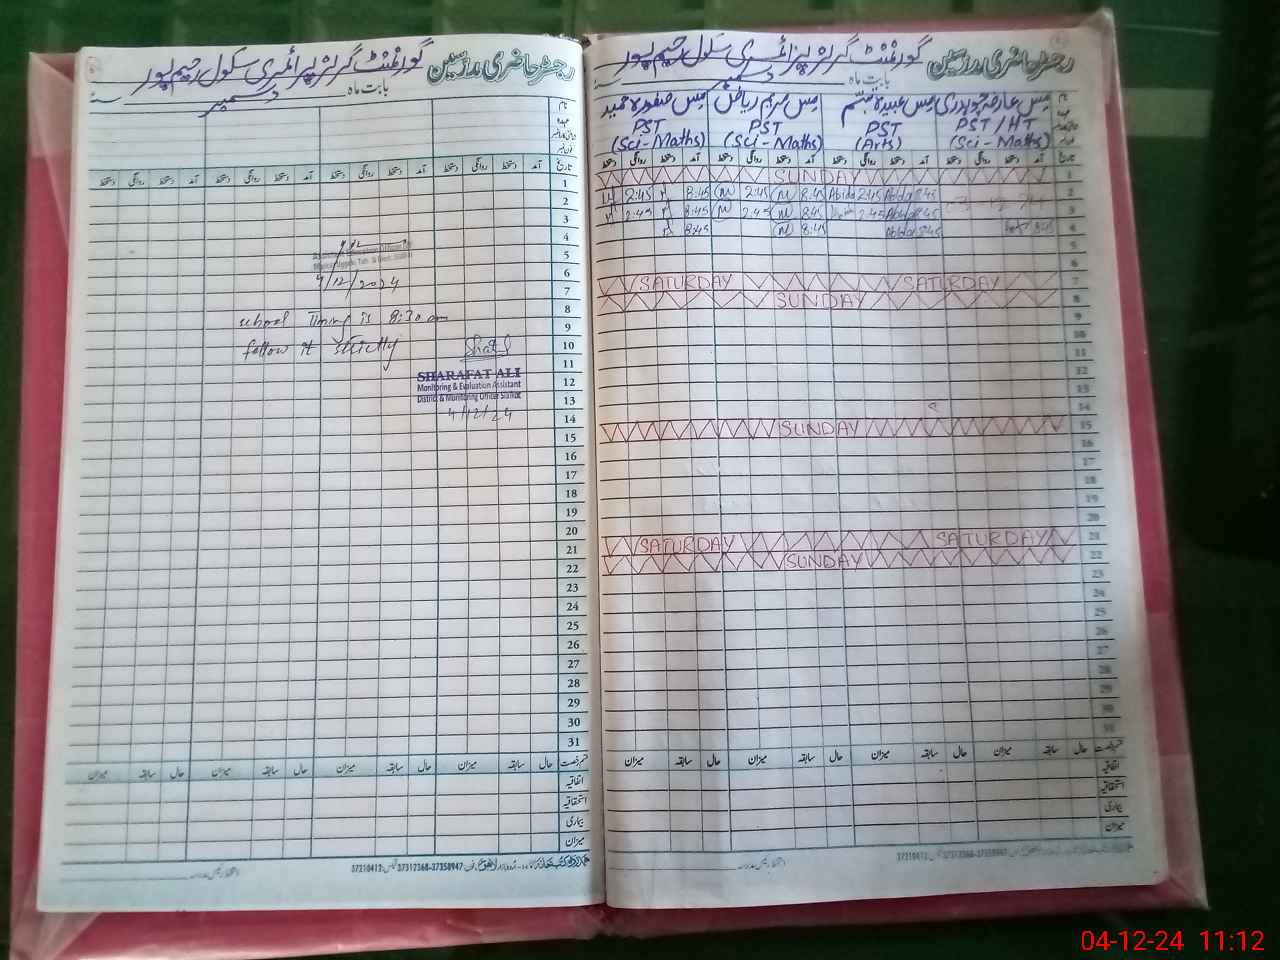 رجسٹر حاضری مدرسین گورنمنٹ گرلز پرائمری سکول رحیم پور
بابت ماہ دسمبر
نام
عہدہ
مس عارفہ چوہدری
PST / HT
(Sci-Maths)
مس عبیدہ تبسم
PST
(Arts)
مس مریم ریاض
PST
(Sci-Maths)
مس صفورہ حمید
PST
(Sci-Maths)
تاریخ آمد دستخط روانگی دستخط آمد دستخط روانگی دستخط آمد دستخط روانگی دستخط آمد دستخط روانگی دستخط
1 SUNDAY
2 8:45 Abida 2:45 Abida 8:45 M 2:45 M 8:45 2:45
3 8:45 Abida 2:45 8:45 M 2:45 M 8:45 2:45
4 8:45 8:45 Abida 8:45 M 8:45
5
6
7 SATURDAY SATURDAY
8 SUNDAY
9
10
11
12
13
14
15 SUNDAY
16
17
18
19
20
21 SATURDAY SATURDAY
22 SUNDAY
23
24
25
26
27
28
29
30
31
قسم رخصت حال سابقہ میزان حال سابقہ میزان حال سابقہ میزان حال سابقہ میزان
اتفاقیہ
استحقاقیہ
بیماری
میزان
37210412 37312368-37358947
رجسٹر حاضری مدرسین گورنمنٹ گرلز پرائمری سکول رحیم پور
بابت ماہ دسمبر
نام
عہدہ
تاریخ آمد دستخط روانگی دستخط آمد دستخط روانگی دستخط آمد دستخط روانگی دستخط آمد دستخط روانگی دستخط
1
2
3
4
5
6
4/12/2024
7
8
school Timing is 8:30 am
9
follow it strictly
10
11
SHARAFAT ALI
12
Monitoring & Evaluation Assistant
District & Monitoring Officer Sialkot
13
4/12/24
14
15
16
17
18
19
20
21
22
23
24
25
26
27
28
29
30
31
قسم رخصت حال سابقہ میزان حال سابقہ میزان حال سابقہ میزان حال سابقہ میزان
اتفاقیہ
استحقاقیہ
بیماری
میزان
37210412 37312368-37358947
04-12-24 11:12